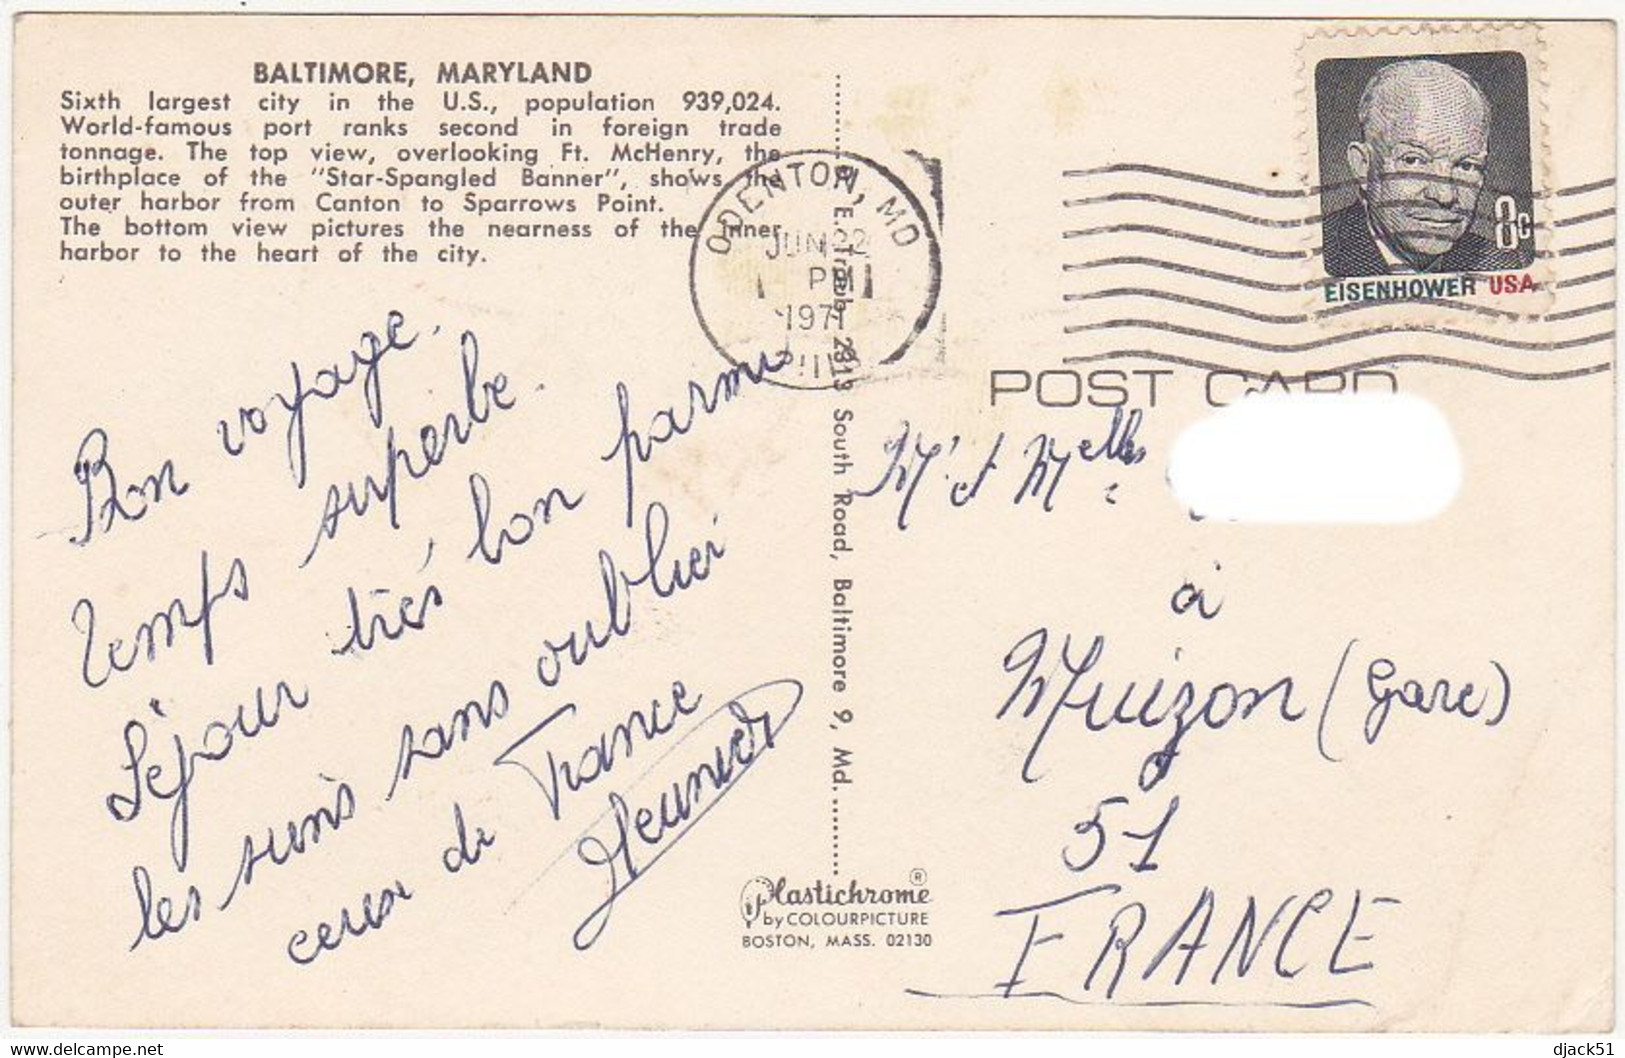 BALTIMORE, MARYLAND
Sixth largest city in the U.S., population 939,024.
World-famous port ranks second in foreign trade
tonnage. The top view, overlooking Ft. McHenry, the
birthplace of the "Star-Spangled Banner", shows the
outer harbor from Canton to Sparrows Point.
The bottom view pictures the nearness of the inner
harbor to the heart of the city.
Bon voyage.
temps superbe.
Séjour très bon parmi
les amis sans oublier
ceux de France
Meunier
E. Traub, 2313 South Road, Baltimore 9, Md.
Plastichrome®
by COLOURPICTURE
BOSTON, MASS. 02130
ODENTON, MD
JUN 22
PM
1971
8c
EISENHOWER USA
POST CARD
Mr et Melles
à
Muizon (Gare)
51
FRANCE
www.delcampe.net
djack51